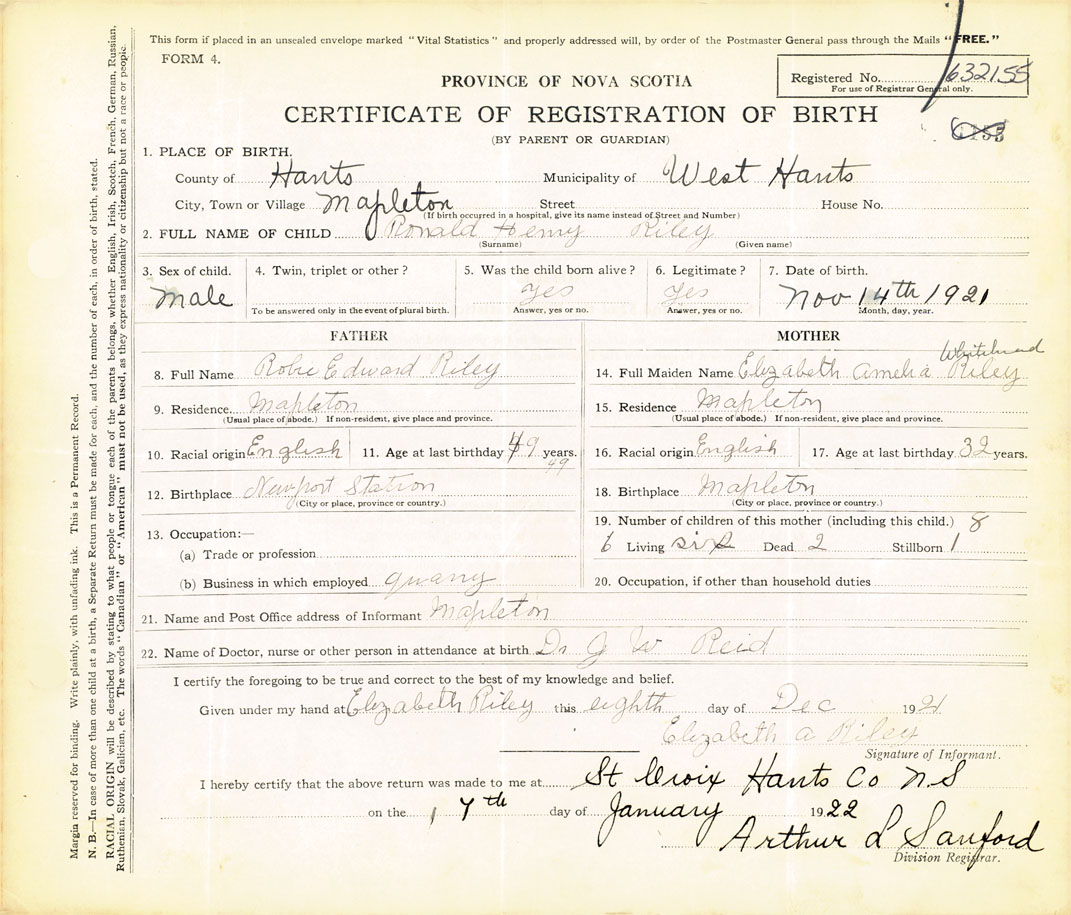 This form if placed in an unsealed envelope marked "Vital Statistics" and properly addressed will, by order of the Postmaster General pass through the Mails "FREE."
FORM 4.
Registered No. 632155
For use of Registrar General only.
PROVINCE OF NOVA SCOTIA
CERTIFICATE OF REGISTRATION OF BIRTH
(BY PARENT OR GUARDIAN)
1. PLACE OF BIRTH.
County of Hants Municipality of West Hants
City, Town or Village Mapleton Street House No.
(If birth occurred in a hospital, give its name instead of Street and Number)
2. FULL NAME OF CHILD Ronald Henry Riley
(Surname) (Given name)
3. Sex of child. 4. Twin, triplet or other? 5. Was the child born alive? 6. Legitimate? 7. Date of birth.
Male yes yes Nov 14th 1921
To be answered only in the event of plural birth. Answer, yes or no. Answer, yes or no. Month, day, year.
FATHER
8. Full Name Robie Edward Riley
9. Residence Mapleton
(Usual place of abode.) If non-resident, give place and province.
10. Racial origin English 11. Age at last birthday 49 years.
49
12. Birthplace Newport Station
(City or place, province or country.)
13. Occupation:—
(a) Trade or profession
(b) Business in which employed quarry
MOTHER
Whitehead
14. Full Maiden Name Elizabeth Amelia Riley
15. Residence Mapleton
(Usual place of abode.) If non-resident, give place and province.
16. Racial origin English 17. Age at last birthday 32 years.
18. Birthplace Mapleton
(City or place, province or country.)
19. Number of children of this mother (including this child.) 8
6 Living six Dead 2 Stillborn 1
20. Occupation, if other than household duties
21. Name and Post Office address of Informant Mapleton
22. Name of Doctor, nurse or other person in attendance at birth Dr J W Reid
I certify the foregoing to be true and correct to the best of my knowledge and belief.
Given under my hand at Elizabeth Riley this eighth day of Dec 1921
Elizabeth A Riley
Signature of Informant.
I hereby certify that the above return was made to me at St Croix Hants Co N.S
on the 17th day of January 1922
Arthur L Sanford
Division Registrar.
Margin reserved for binding. Write plainly, with unfading ink. This is a Permanent Record.
N. B.—In case of more than one child at a birth, a Separate Return must be made for each, and the number of each, in order of birth, stated.
RACIAL ORIGIN will be described by stating to what people or tongue each of the parents belongs, whether English, Irish, Scotch, French, German, Russian,
Ruthenian, Slovak, Galician, etc. The words "Canadian" or "American" must not be used, as they express nationality or citizenship but not a race or people.